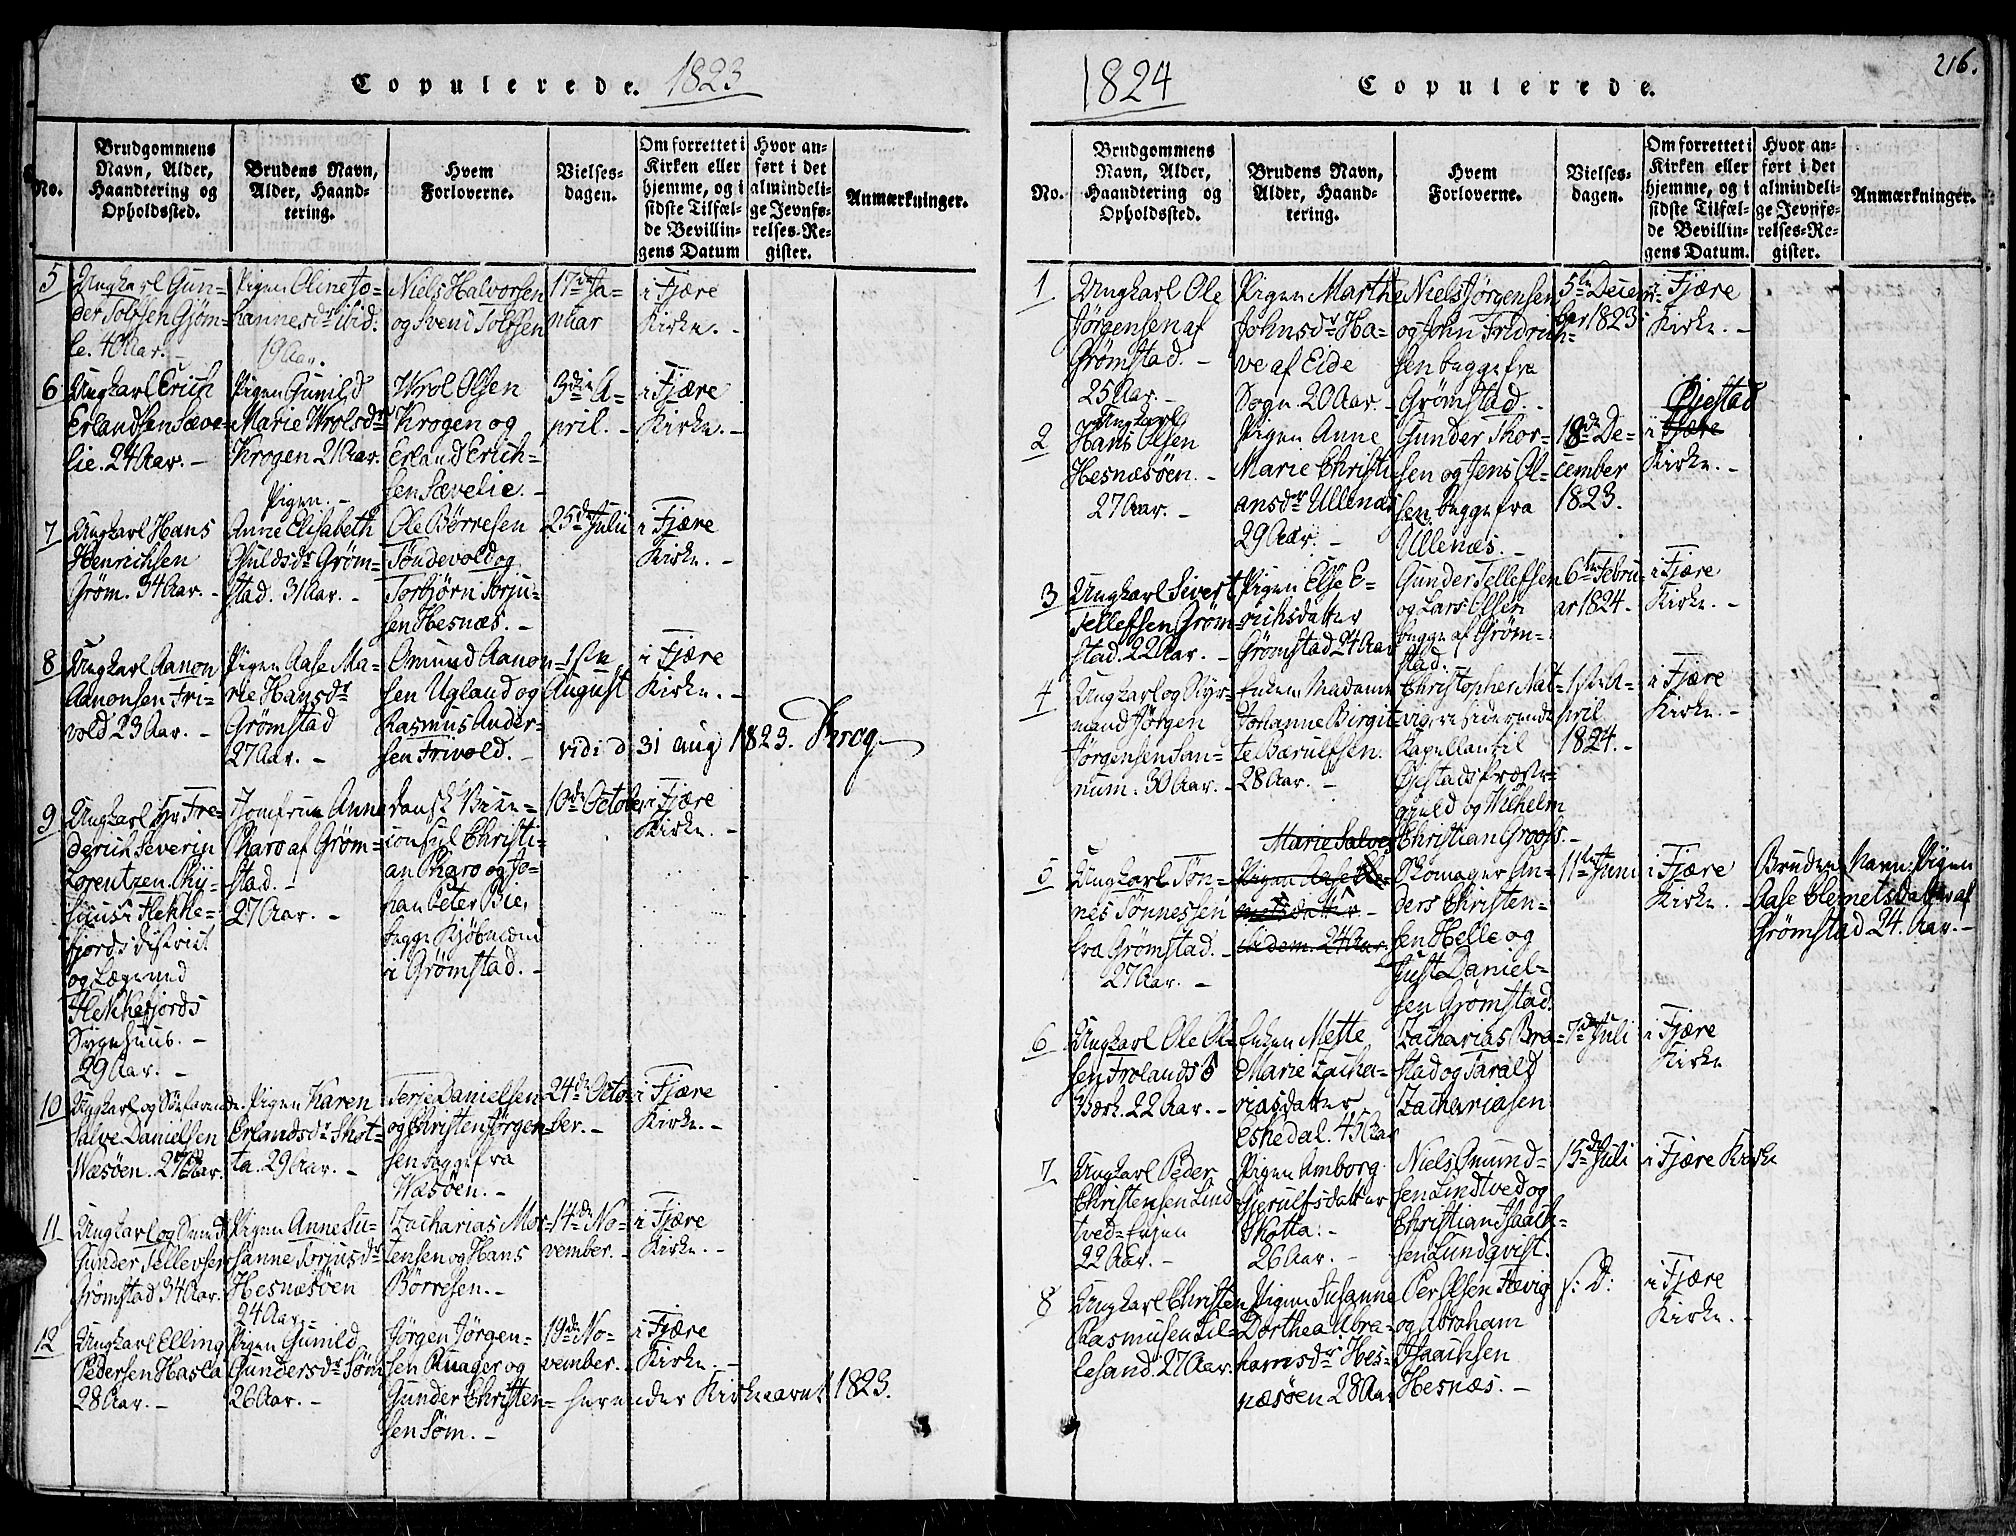 Copulerede. 1823
No.
Brudgommens
Navn, Alder,
Haandtering og
Opholdssted.
Brudens Navn,
Alder, Haand-
tering.
Hvem
Forloverne.
Vielses-
dagen.
Om forrettet i
Kirken eller
hjemme, og i
sidste Tilfæl-
de Bevillin-
gens Datum
Hvor an-
ført i det
almindeli-
ge Jevnfø-
relses-Re-
gister.
Anmærkninger.
5
Ungkarl Gun-
der Tolfsen Gjøm-
le. 40 Aar. -
Pigen Oline Jo-
hannesdr ibid.
19 Aar.
Niels Halvorsen
og Svend Tolfsen
17de Ja-
nuar
i Fjære
Kirke. -
6
Ungkarl Erich
Erlandsen Sæve-
lie. 24 Aar. -
Pigen Gunild
Marie Wrolsdr
Krogen 21 Aar.
Wrol Olsen
Krogen og
Erland Erich-
sen Sævelie. -
3die A-
pril. -
i Fjære
Kirke. -
7
Ungkarl Hans
Henrichsen
Grøm. 34 Aar. -
Pigen. -
Anne Elisabeth
Grøm-
stad. 31 Aar. -
Ole Børresen
Tøndevold og
Torbjørn Torju-
sen Hesnæs. -
25de Julii
i Fjære
Kirke. -
8
Ungkarl Aanon
Aanonsen Fri-
vold 23 Aar. -
Pigen Aase Ma-
rie Hansdr
Grømstad
27 Aar. -
Omund Aanon-
sen Ugland og
Rasmus Ander-
sen Frivold. -
1ste
August
i Fjære
Kirke. -
vidi d. 31 aug 1823. Krog
9
Ungkarl Hr Fre-
derich Severin
Lorentzen Phy-
sicus i Flekke-
fjords district
og Læge ved
Flekkefjords
Sygehuus. -
29 Aar. -
Jomfrue Anne
Pharo af Grøm-
stad. -
27 Aar. -
dansk Vice-
consul Christi-
an Pharo og Jo-
han Peter Bie,
begge Kjøbmænd
i Grømstad. -
10de October
i Fjære
Kirke. -
10
Ungkarl og Søefarende
Salve Danielsen
Wæsøen. 27 Aar.
Pigen Karen
Erlandsdr Skot-
ta. 29 Aar. -
Terje Danielsen
og Christen Jørgen-
sen begge fra
Wæsøen. -
24de Octo-
ber. -
i Fjære
Kirke. -
11
Ungkarl og
Gunder Tellevsen
Grømstad 34 Aar.
Pigen Anne Su-
sanne Torjusdr
Hesnæsøen
24 Aar. -
Zacharias Mor-
tensen og Hans
Børresen. -
14de No-
vember. -
i Fjære
Kirke. -
12
Ungkarl Elling
Pedersen Hasla
28 Aar. -
Pigen Gunild
Gundersdr Søm
26 Aar. -
Jørgen Jørgen-
sen Ruager og
Gunder Christen-
sen Søm. -
19de No-
vember. -
i Fjære
Kirke. -
her ender Kirkeaaret 1823.
1824 Copulerede. 216.
No.
Brudgommens
Navn, Alder,
Haandtering og
Opholdssted.
Brudens Navn,
Alder, Haand-
tering.
Hvem
Forloverne.
Vielses-
dagen.
Om forrettet i
Kirken eller
hjemme, og i
sidste Tilfæl-
de Bevillin-
gens Datum.
Hvor an-
ført i det
almindeli-
ge Jevnfø-
relses-Re-
gister.
Anmærkninger.
1
Ungkarl Ole
Jørgensen af
Grømstad. -
25 Aar. -
Pigen Marthe
Johnsdr Ha-
ve af Eide
Sogn 20 Aar. -
Niels Jørgensen
og John Fridrich-
sen begge fra
Grømstad. -
5te Decem-
ber 1823.
i Fjære
Kirke. -
2
Ungkarl
Hans Olsen
Hesnæsøen. -
27 Aar. -
Pigen Anne
Marie Christi-
ansdr Ullenæs
29 Aar. -
Gunder Thor-
sen og Jens Ol-
sen begge fra
Ullenæs. -
18de De-
cember
1823.
Øiestad
i Fjære
Kirke. -
3
Ungkarl Sivert
Tellefsen Grøm-
stad. 22 Aar. -
Pigen Else E-
richsdatter
Grømstad 24 Aar
Gunder Tellefsen
og Lars Olsen
begge af Grøm-
stad.
6te Febru-
ar 1824. -
i Fjære
Kirke. -
4
Ungkarl og Styr-
mand Jørgen
Jørgensen San-
num. 30 Aar. -
Enken Madame
Johanne Birgit-
te Bærulfsen.
28 Aar. -
Christopher Nat-
vig, residerende
Kapellan til
Øjestads Præste-
gjeld og Wilhelm
Christian Grooss. -
1ste A-
pril
1824. -
i Fjære
Kirke. -
5
Ungkarl Tøn-
nes Tønnessen
fra Grømstad. -
27 Aar. -
Marie Salves
Pigen Aase Cle-
metsdatter -
ibidem. 24 Aar.
Skomager An-
ders Christen-
sen Helle og
Just Daniel-
sen Grømstad.
11te Juni
i Fjære
Kirke. -
Brudens Navn: Pigen
Aase Clemetsdatter af
Grømstad 24. Aar. -
6
Ungkarl Ole Ol-
sen Frolands
Værk. 22 Aar. -
Enken Mette
Marie Zacha-
riasdatter
Eshedal. 45 Aar
Zacharias Bra-
stad og Tarald
Zachariasen
7de Juli
i Fjære
Kirke
7
Ungkarl Peder
Christensen Lind-
tved-Eyen
22 Aar. -
Pigen Amborg
Gjerulfsdatter
Skotta. -
26 Aar. -
Niels Omund-
sen Lindtved og
Christian Isaach-
sen Lundqvist.
15de Juli
i Fjære Kirke
8
Ungkarl Christen
Rasmusen Lil-
lesand. 27 Aar.
Pigen Susanne
Dorthea Abra-
hamsdr Hes-
næsøen 28 Aar
Per Olsen Fævig
og Abraham
Isaachsen
Hesnæs. -
s: D:
i Fjære
Kirke. -